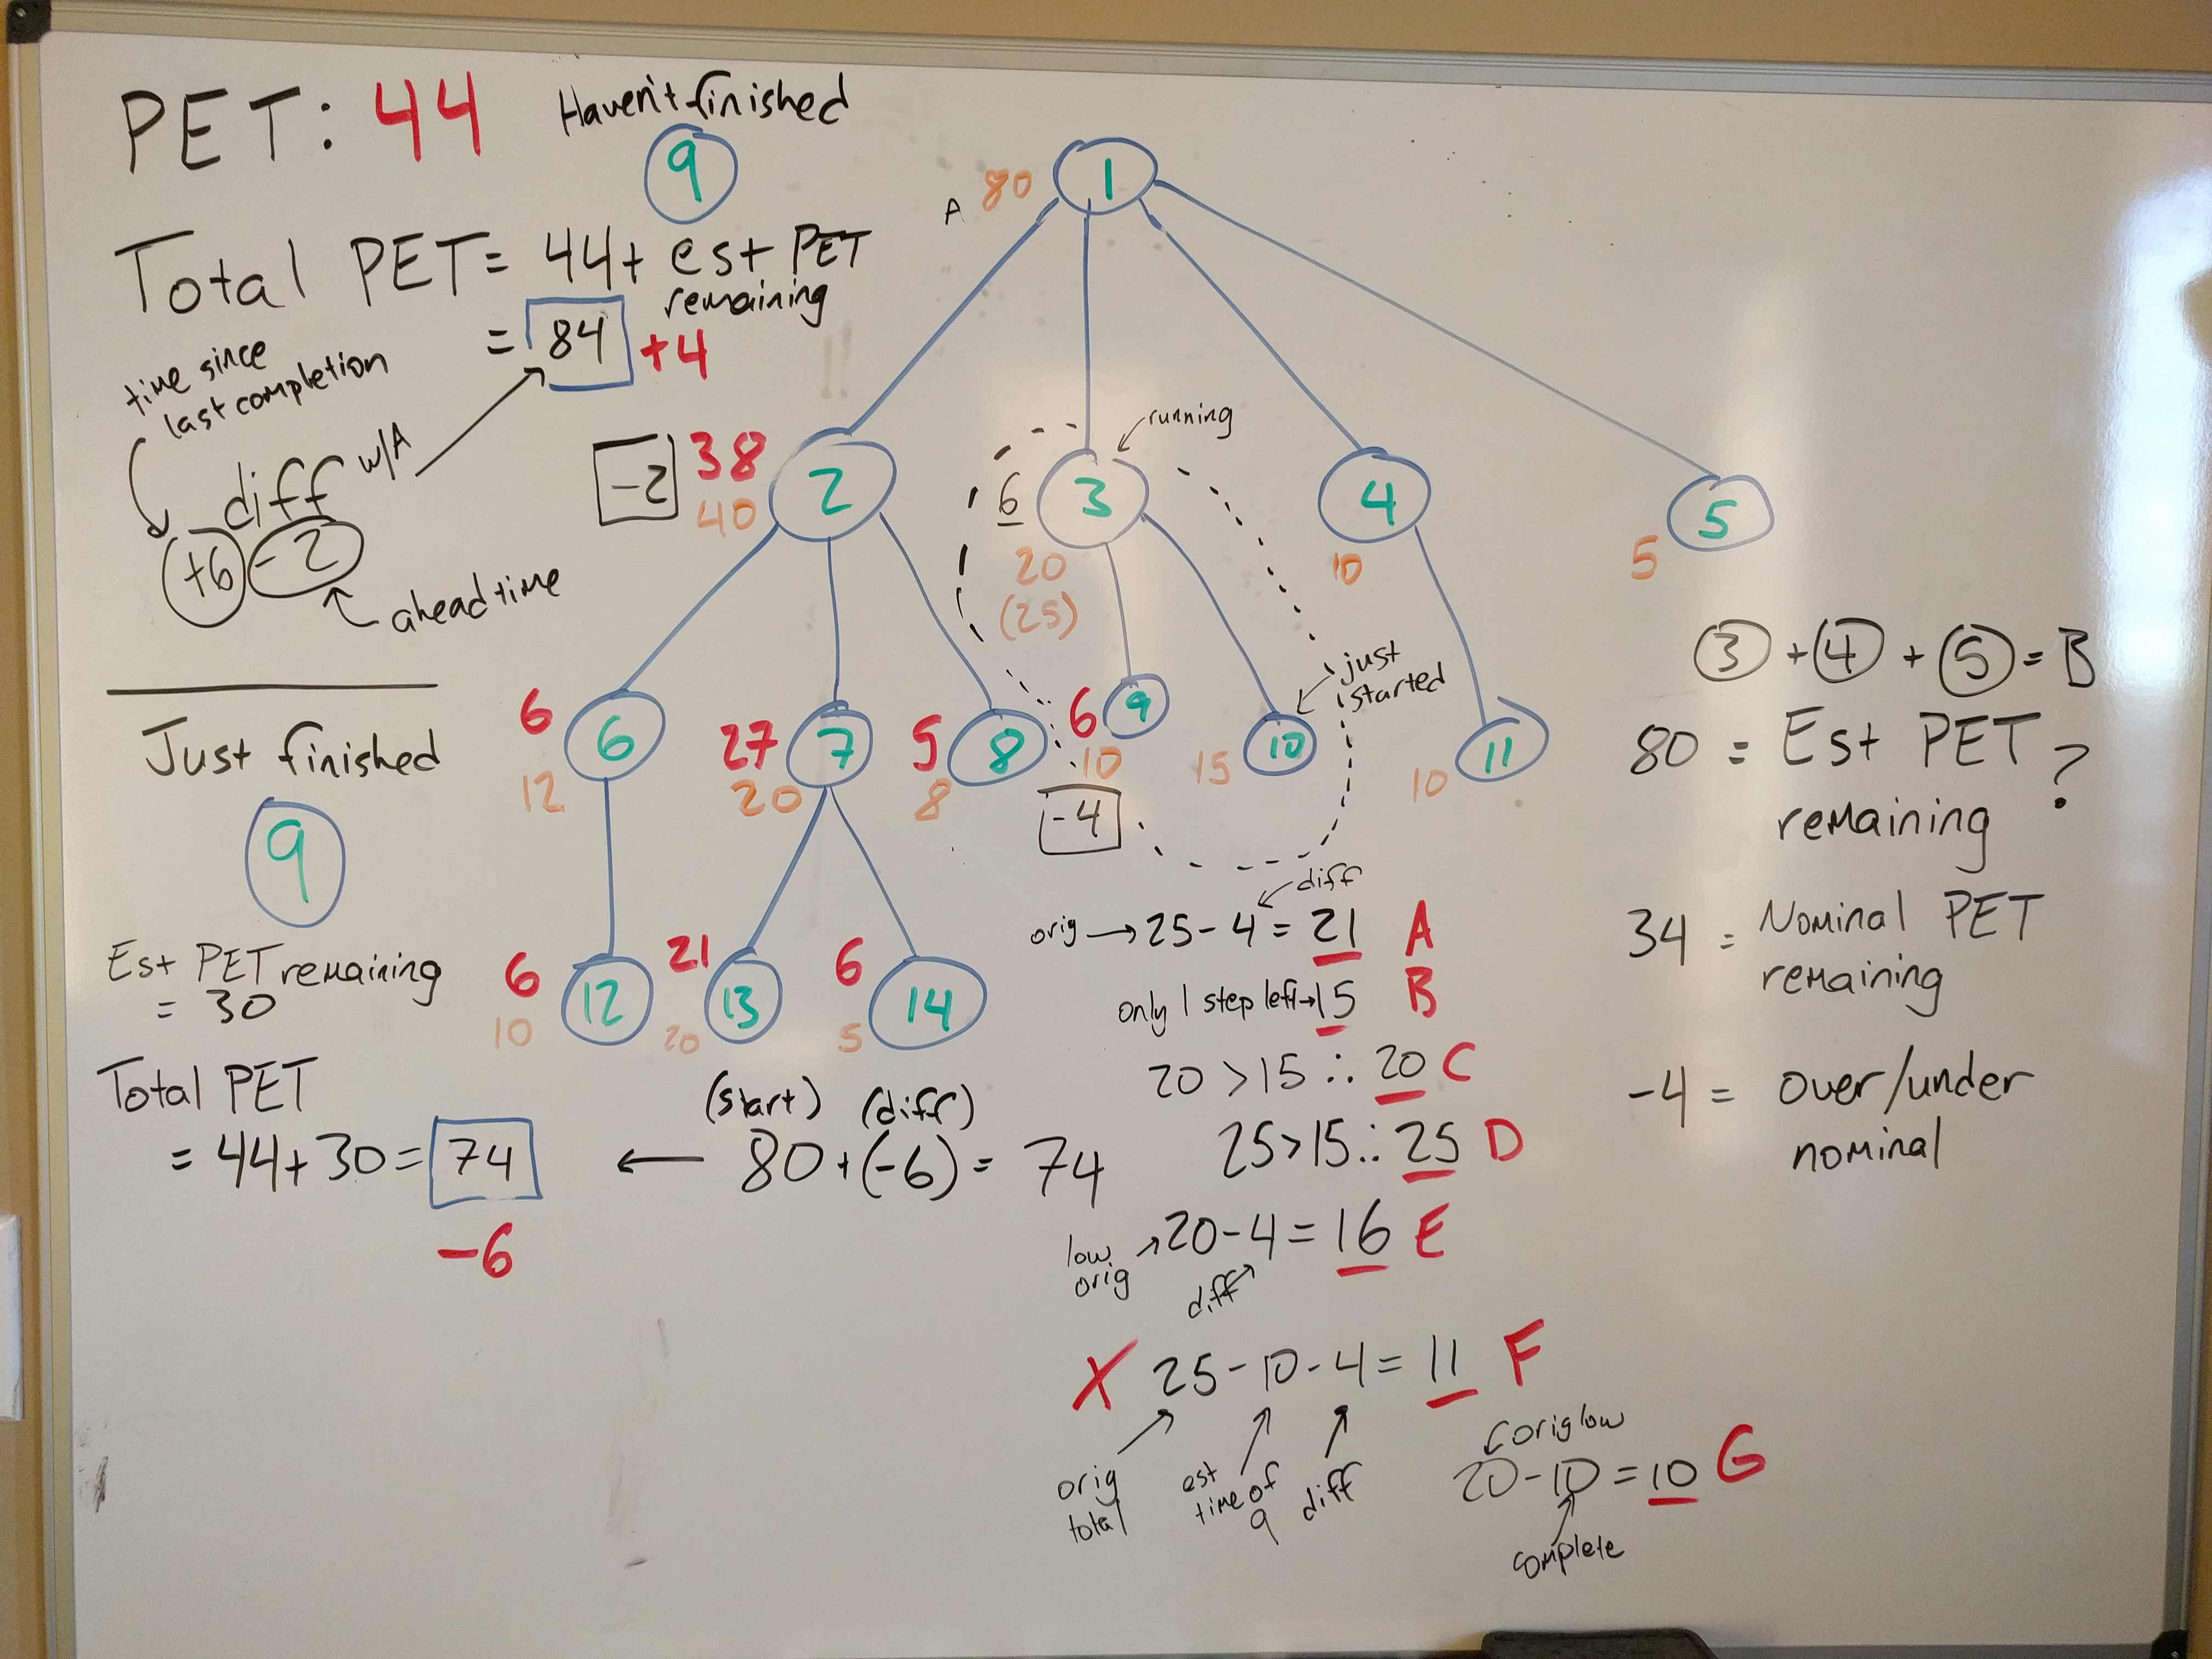 PET: 44
Haven't finished
9
Total PET = 44 + est PET
remaining
= 84 +4
time since
last completion
diff w/A
+6 -2
ahead time
Just finished
9
Est PET remaining
= 30
Total PET
= 44+30 = 74
-6
(start) (diff)
80 + (-6) = 74
A 80 1
-2 38 2
40
running
6 3
20
(25)
4
10
5
5
6 6
12
27 7
20
5 8
8
6 9
10
-4
just
started
10
15
11
10
6 12
10
21 13
20
6 14
5
diff
orig → 25 - 4 = 21 A
only 1 step left → 15 B
20 > 15 ∴ 20 C
25 > 15 ∴ 25 D
low
orig → 20 - 4 = 16 E
diff
X 25 - 10 - 4 = 11 F
orig
total
est
time of
9
diff
orig low
20 - 10 = 10 G
complete
3 + 4 + 5 = B
80 = Est PET
remaining ?
34 = Nominal PET
remaining
-4 = over/under
nominal